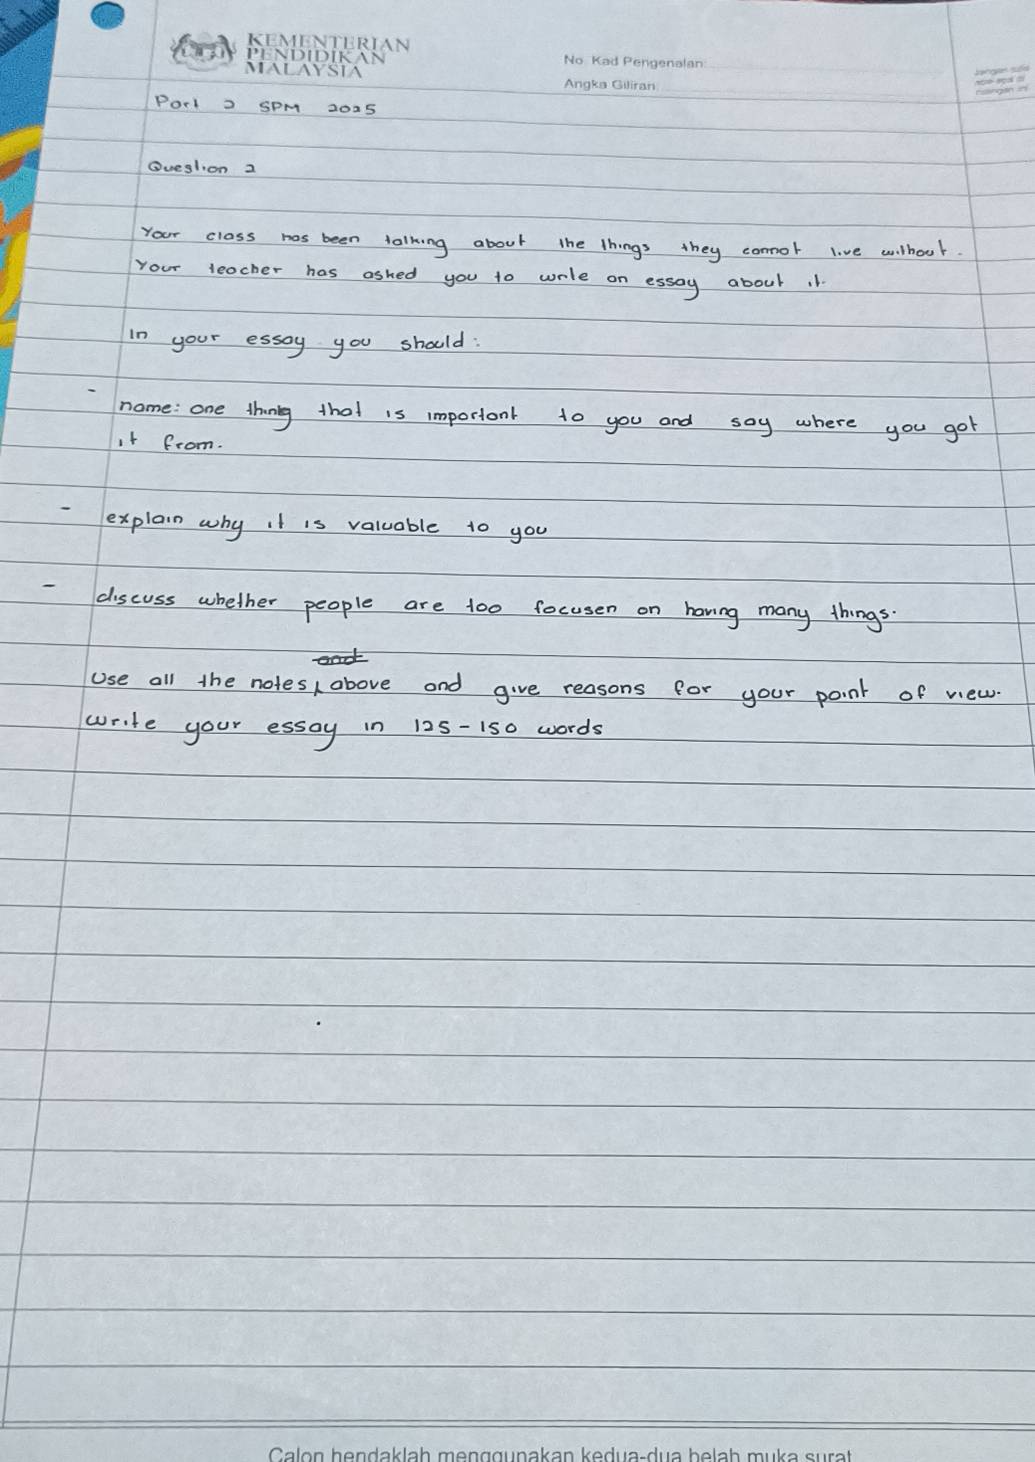 KEMENTERIAN
PENDIDIKAN
MALAYSIA
No. Kad Pengenalan:
Angka Giliran:
Jangan tulis
apa-apa di
ruangan ini
Part 2 SPM 2025
Question 2
Your class has been talking about the things they cannot live without.
Your teacher has asked you to write an essay about it.
In your essay you should:
- name: one thing that is important to you and say where you got
it from.
- explain why it is valuable to you
- discuss whether people are too focusen on having many things.
and
Use all the notes, above and give reasons for your point of view.
Write your essay in 125-150 words
Calon hendaklah menggunakan kedua-dua belah muka surat